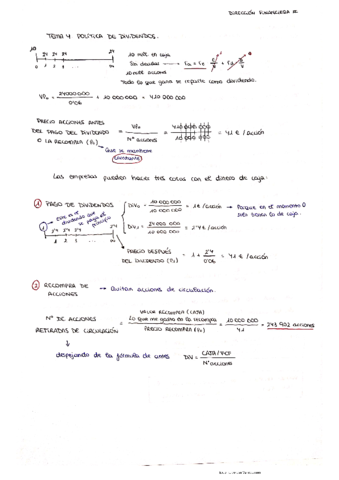 DIRECCIÓN FINANCIERA II
TEMA 4 POLÍTICA DE DIVIDENDOS.
10
24 24 24 24
0 1 2 3 ... ∞
10 mill en caja
Sin deudas
10 mill acciones
Todo lo que gana se reparte como dividendo.
VE0 = 24 000 000 / 0'06 + 10 000 000 = 410 000 000
PRECIO ACCIONES ANTES
DEL PAGO DEL DIVIDENDO = VE0 / Nº ACCIONES = 410 000 000 / 10 000 000 = 41 € / acción
O LA RECOMPRA (P0)
Que se mantiene
constante
Las empresas pueden hacer tres cosas con el dinero de caja:
1 PAGO DE DIVIDENDOS
Este es el
dividendo que
se paga al
principio
1 2'4 2'4 2'4 2'4
0 1 2 3 ... ∞
DIV0 = 10 000 000 / 10 000 000 = 1 € / acción → Porque en el momento 0
solo tienes lo de caja.
DIV1 = 24 000 000 / 10 000 000 = 2'4 € / acción
PRECIO DESPUÉS
DEL DIVIDENDO (P0) = 1 + 2'4 / 0'06 = 41 € / acción
2 RECOMPRA DE
ACCIONES → Quitan acciones de circulación.
Nº DE ACCIONES
RETIRADAS DE CIRCULACIÓN = VALOR RECOMPRA (CAJA) / PRECIO RECOMPRA (P0) = 10 000 000 / 41 = 243 902 acciones
Lo que me gasto en la recompra
despejando de la fórmula de antes DIV = CAJA / Nº acciones